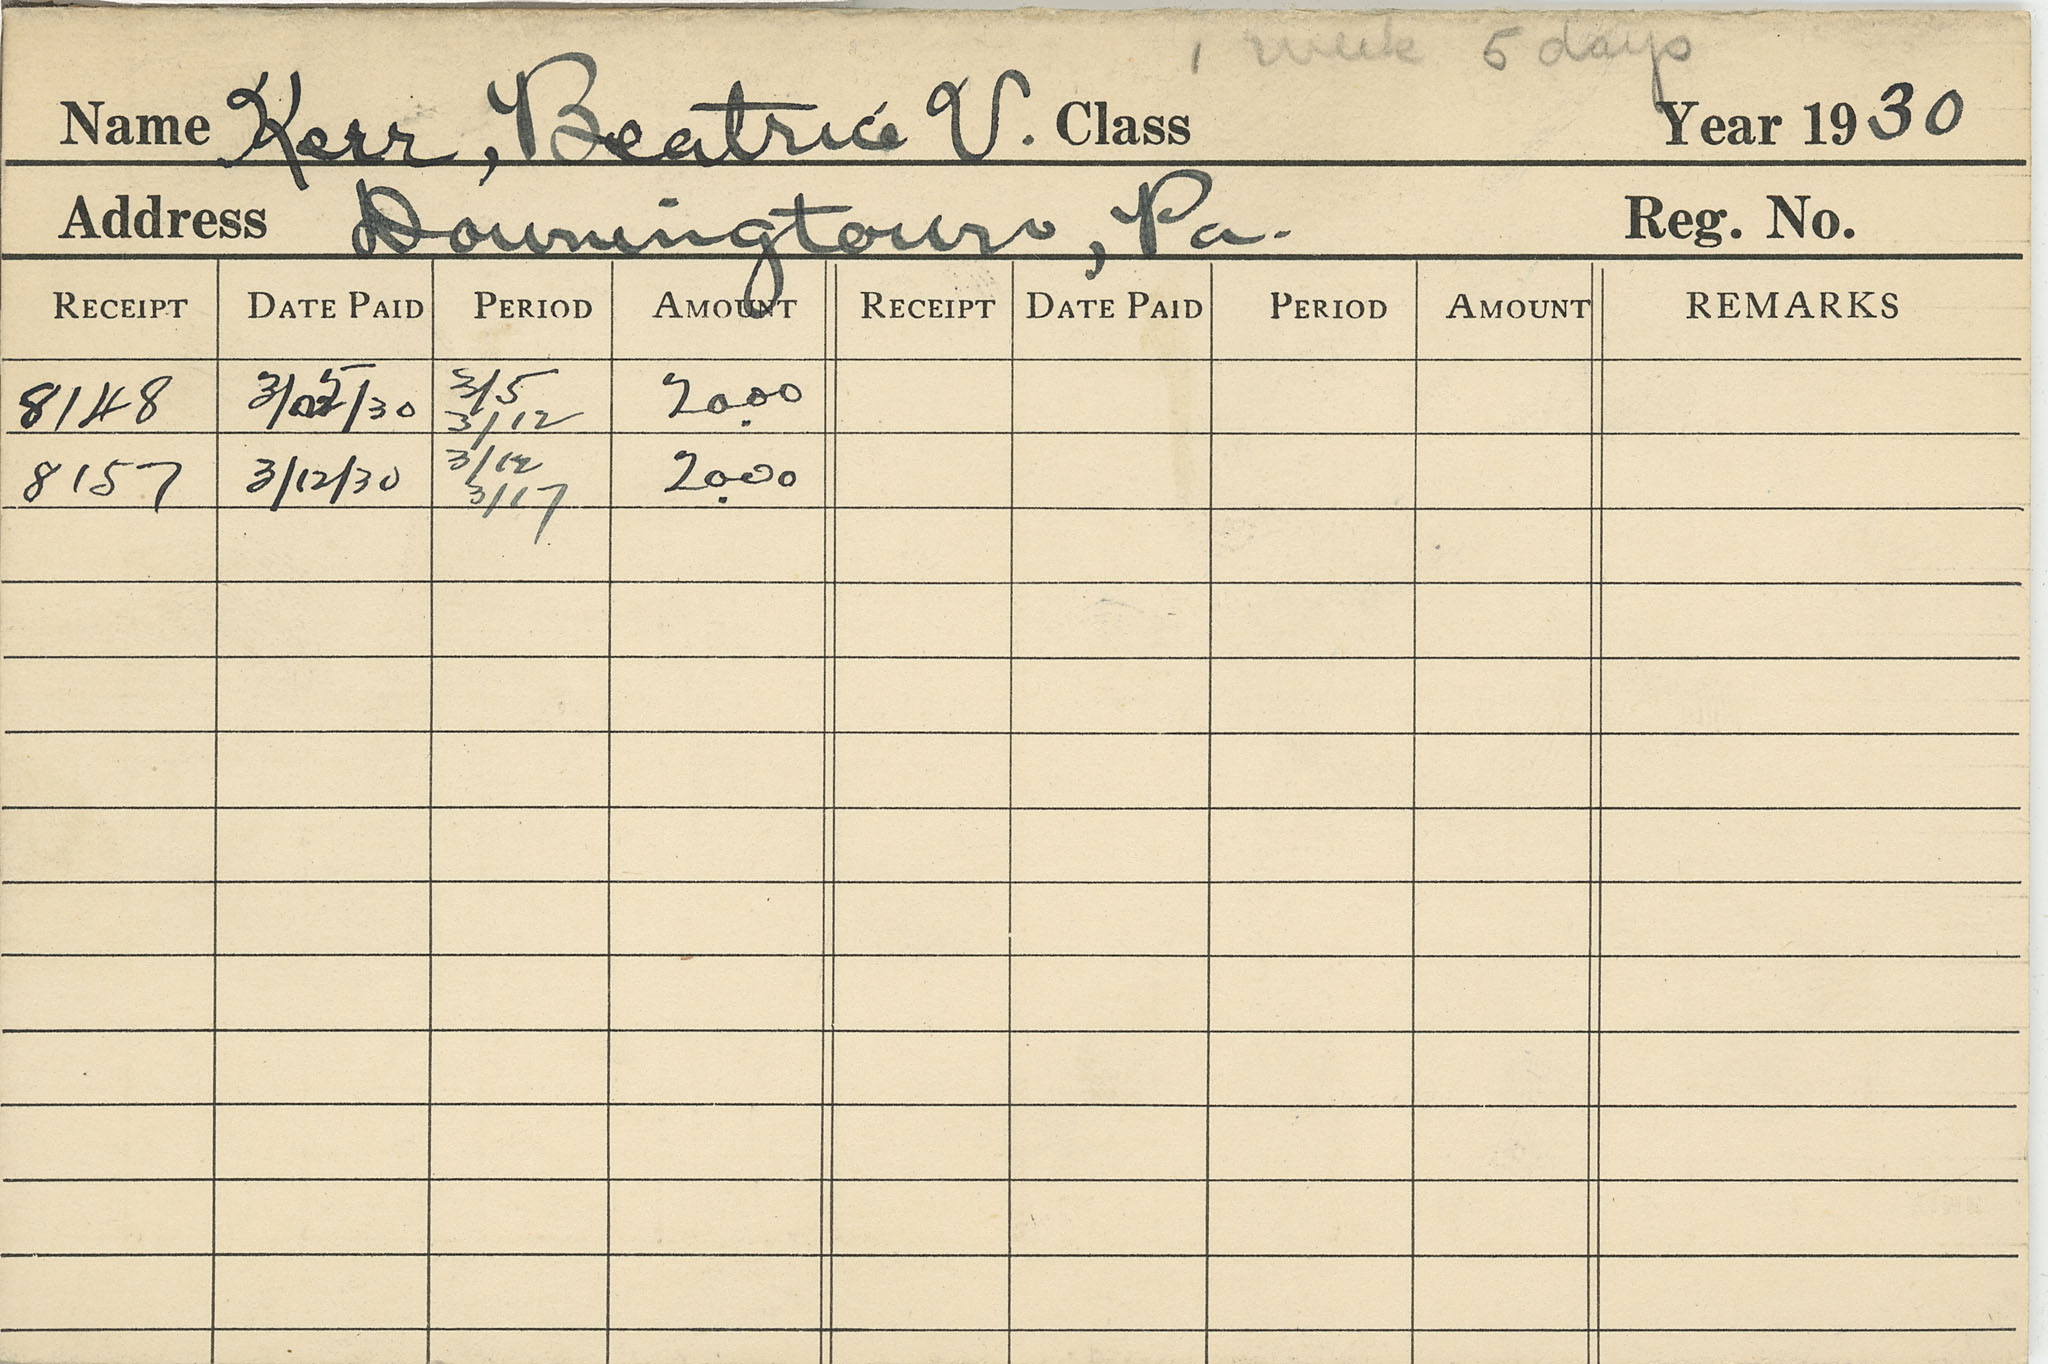 1 week 5 days
Name Kerr, Beatrice V. Class Year 1930
Address Downingtown, Pa. Reg. No.
RECEIPT DATE PAID PERIOD AMOUNT RECEIPT DATE PAID PERIOD AMOUNT REMARKS
8148 3/5/30 3/5 20.00
3/12
8157 3/12/30 3/12 20.00
3/17